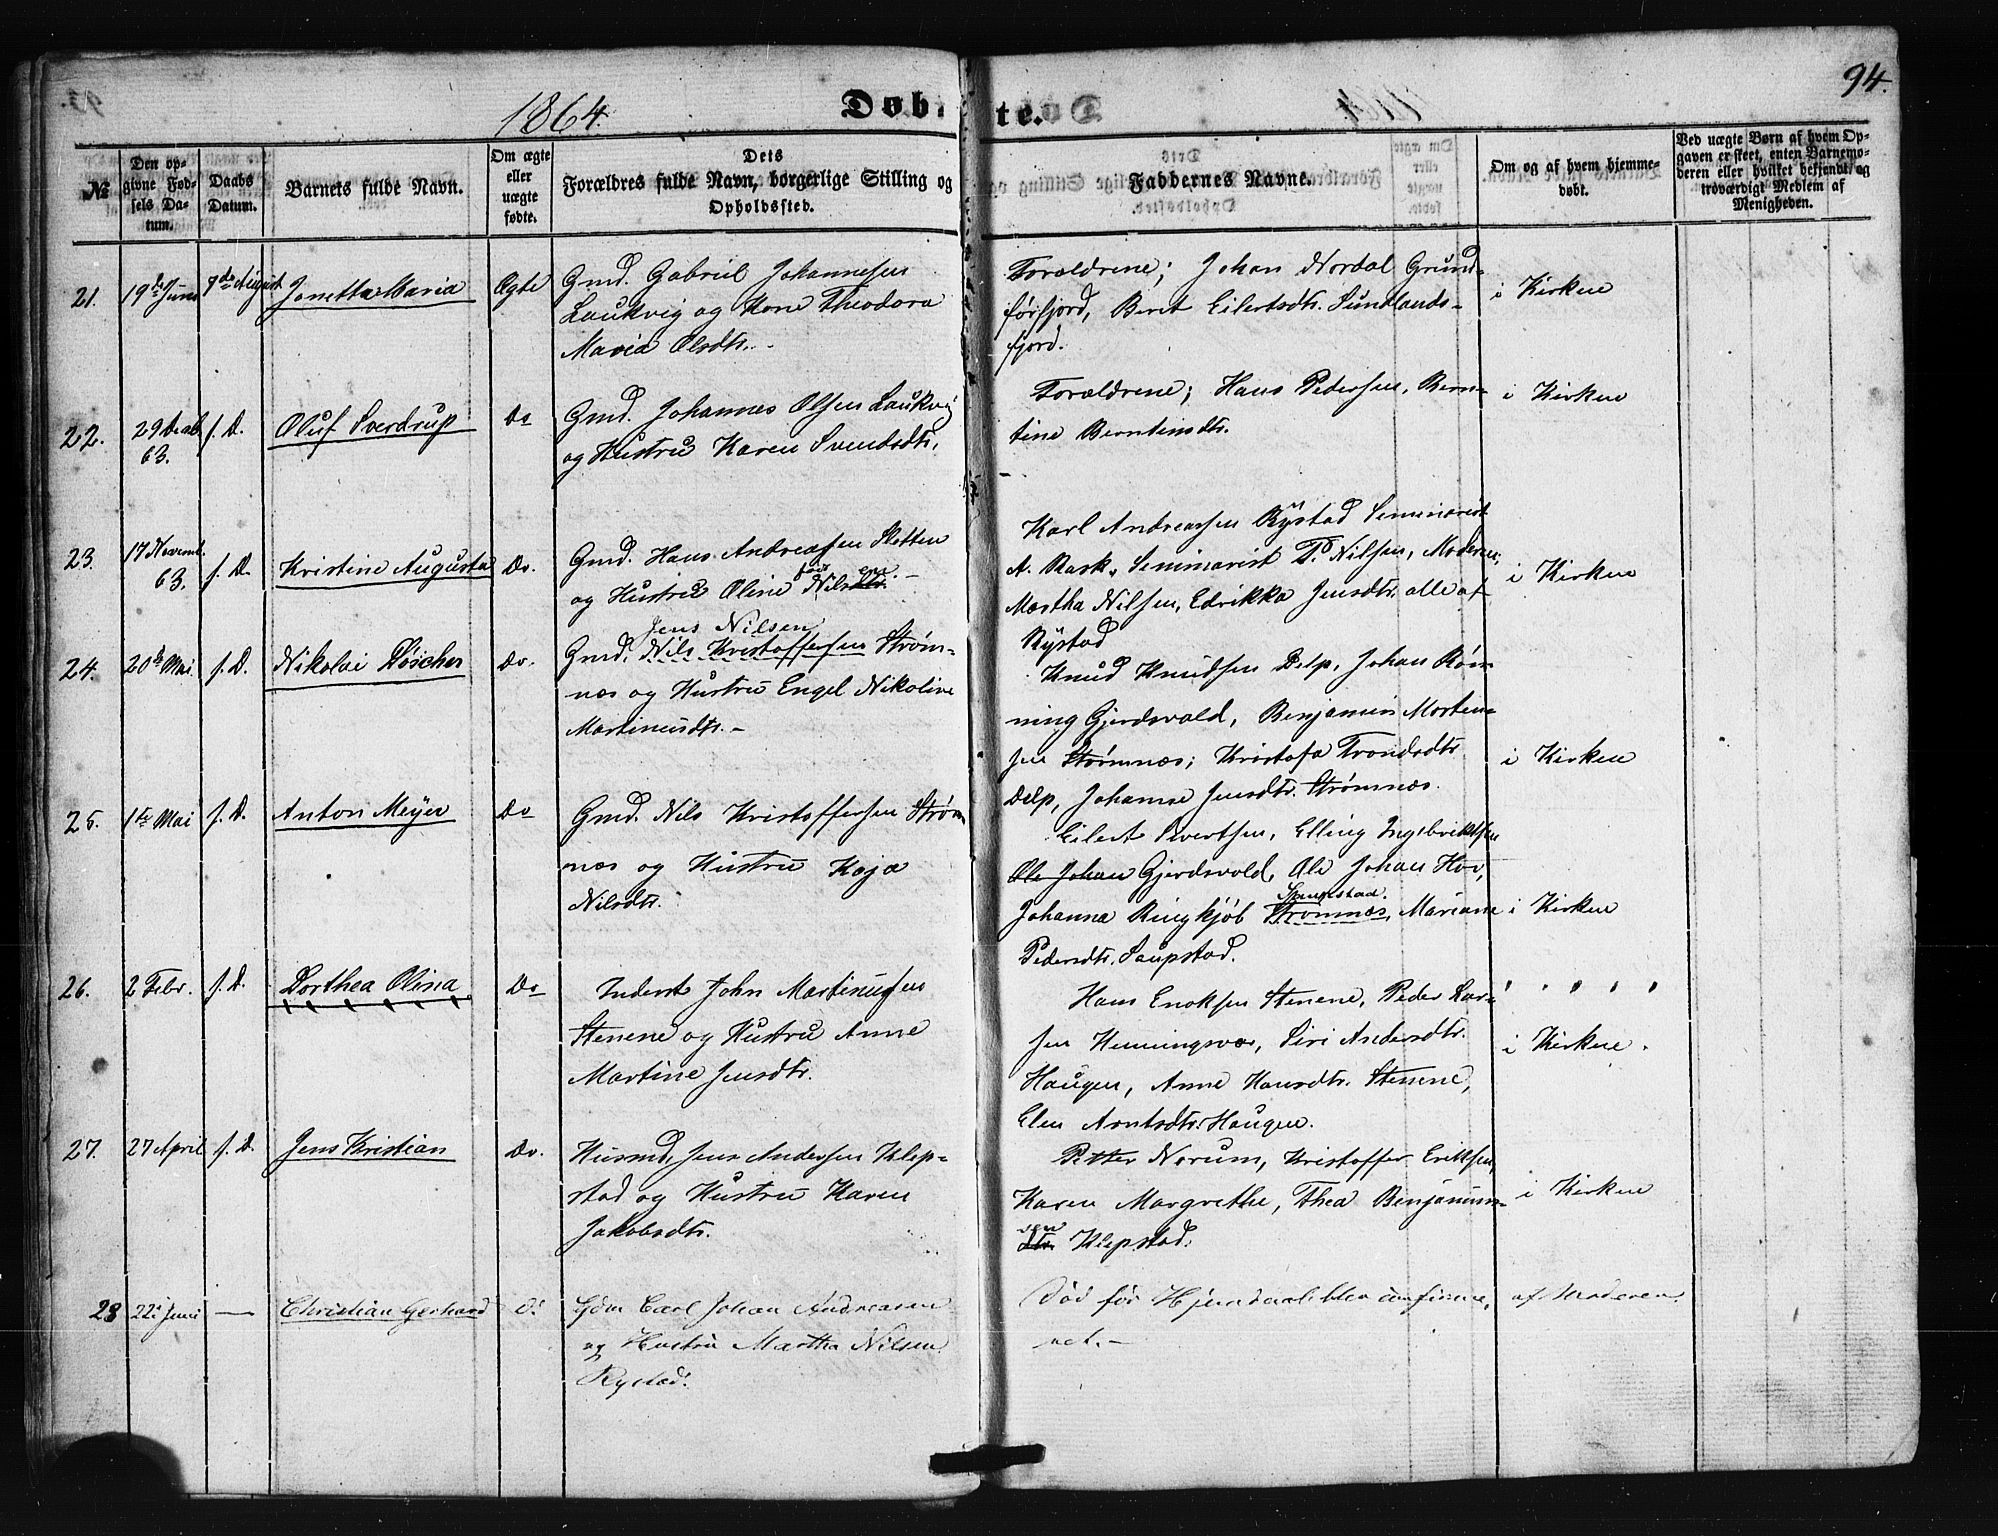 1864.
Døb-
te.
94.
№
Den op-
givne Fød-
sels Da-
tum.
Daabs
Datum.
Barnets fulde Navn.
Om ægte
eller
uægte
fødte.
Dets
Forældres fulde Navn, borgerlige Stilling og
Opholdssted.
Faddernes Navne.
Om og af hvem hjemme-
døbt.
Ved uægte Børn af hvem Op-
gaven er skeet, enten Barnemo-
deren eller hvilket bekjendt og
troværdigt Medlem af
Menigheden.
21.
19de Juni
7de August
Jonetta Maria
Ægte
Gmd. Gabriel Johannesen
Laukvig og Kone Theodora
Maria Olsdtr.
Forældrene; Johan Nordal Grund-
førfjord, Beret Eilertsdtr. Sundlands-
fjord.
i Kirken
22.
29 Decb.
63.
s. D.
Oluf Sverdrup
Do
Gmd. Johannes Olsen Laukvig
og Hustru Karen Svendsdtr.
Forældrene; Hans Pedersen, Bern-
tine Berntensdtr.
i Kirken
23.
17 Novemb.
63.
s. D.
Kristine Augusta
Do.
Gmd. Hans Andreassen Sletten
og Hustru Oline født Nilsdtr. en. –
Karl Andreassen Rystad Seminarist
A. Rask, Seminarist P. Nilsen, Moderen,
Martha Nilsen, Edrikka Jensdtr. alle af
Rystad
i Kirken
24.
20de Mai
s. D.
Nikolai Døscher
Do.
Jens Nilsen
Gmd. Nils Kristoffersen Strøm-
næs og Hustru Engel Nikoline
Martinusdtr. –
Knud Knudsen Delp, Johan Røn-
ning Gjerdsvold, Benjamin Morten-
sen Strømnæs; Kristofa Trondsdtr.
Delp, Johanne Jensdtr. Strømnæs.
i Kirken
25.
1te Mai
s. D.
Anton Meyer
Do
Gmd. Nils Kristoffersen Strøm
næs og Hustru Kaja
Nilsdtr.
Eilert Sivertsen, Elling Ingebriktsen
Ole Johan Gjerdsvold, Ole Johan Hov,
Johanna Ringkjøb Strømnæs, Mariane
Pedersdtr. Saupstad.
i Kirken
26.
2 Febr.
s. D.
Dorthea Olina
Do
Inderst John Martinussen
Stenene og Hustru Anne
Martine Jensdtr.
Hans Enoksen Stenene, Peder Lar-
sen Henningsvær, Siri Andersdtr.
Haugen, Anne Hansdtr. Stenene,
Elen Arntsdtr. Haugen.
i Kirken.
27.
27 April
s. D.
Jens Kristian
Do.
Husmd. Jens Andersen Klep-
stad og Hustru Karen
Jakobsdtr.
Petter Norum, Kristoffer Eriksen,
Karen Margrethe, Thea Benjamin-
sen
dtr. Klepstad.
i Kirken
28
22 Juni
—
Christian Gerhard
Do
Gdm Carl Johan Andreasen
og Hustru Martha Nilsen
Rystad.
Død før Hjemdaab blev confirme-
ret. –
af Moderen.